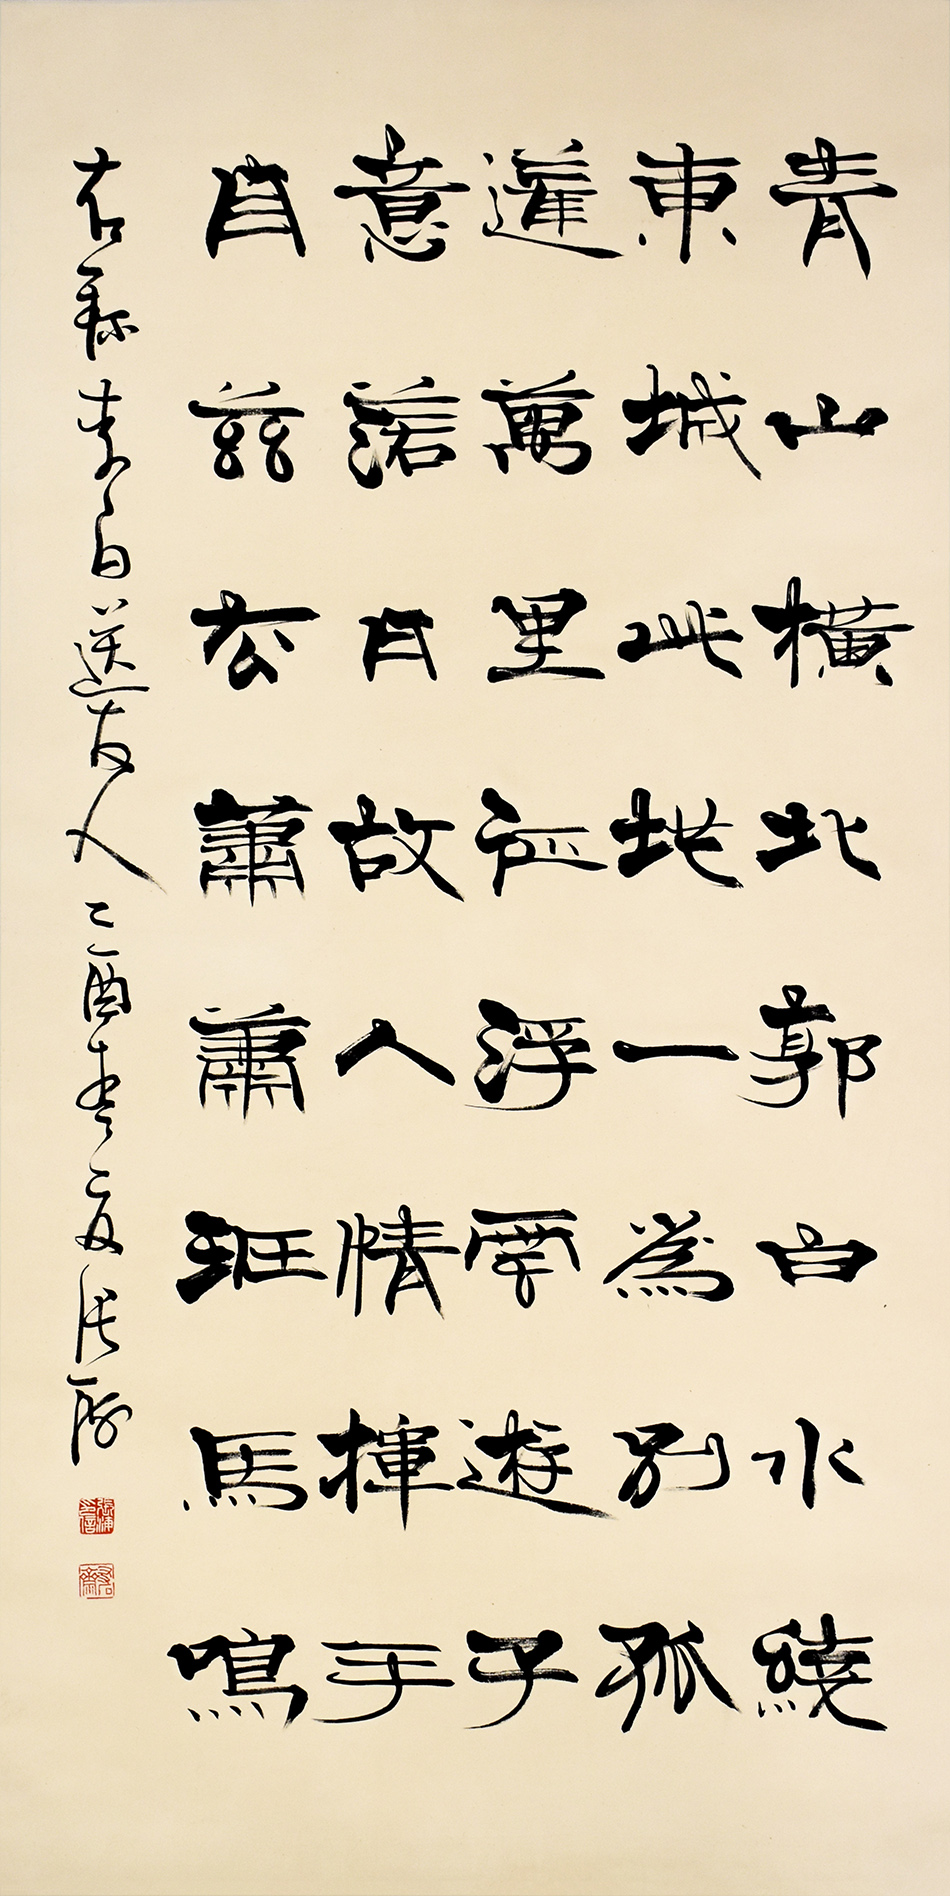 青山橫北郭白水繞
東城此地一為別孤
蓬萬里征浮雲遊子
意落日故人情揮手
自茲去蕭蕭班馬鳴
右錄李白送友人乙酉張